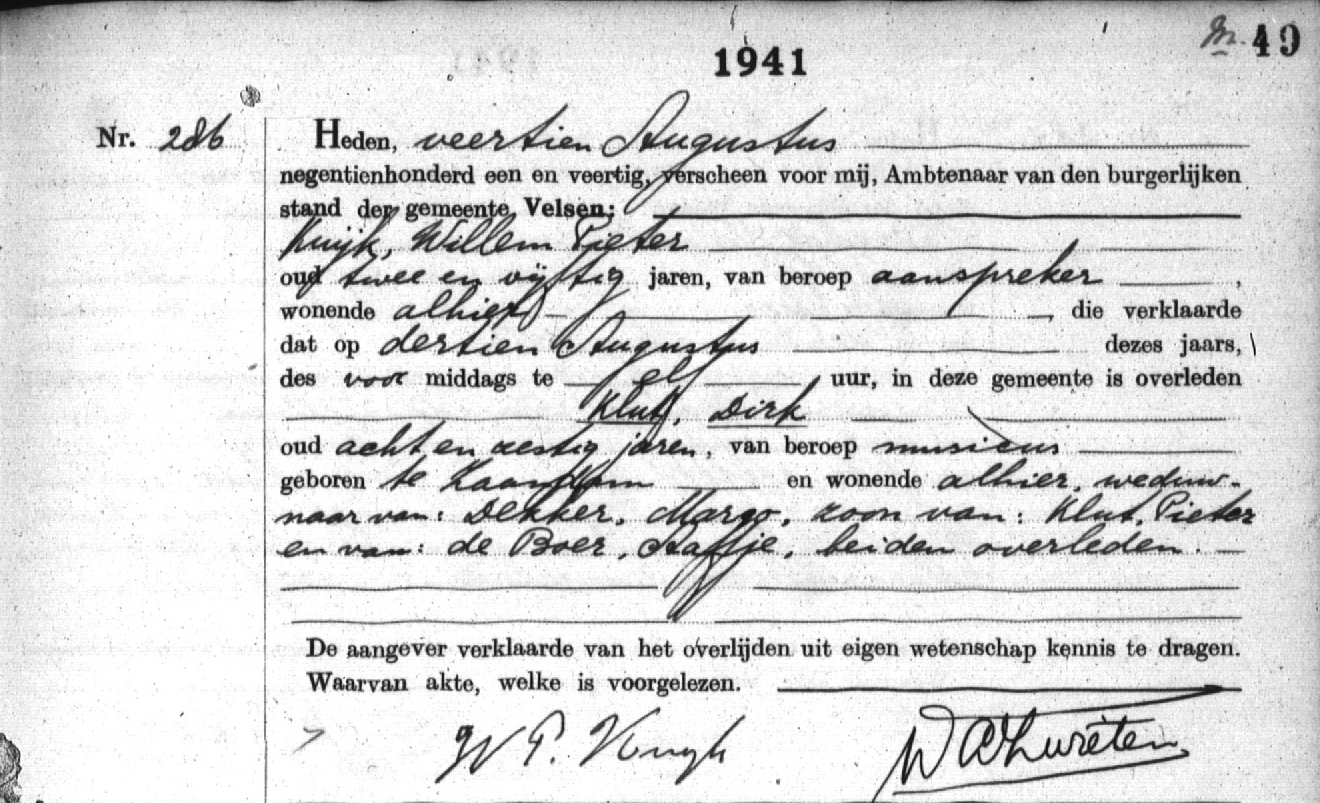 49
1941
Nr. 286 Heden, veertien Augustus
negentienhonderd een en veertig, verscheen voor mij, Ambtenaar van den burgerlijken
stand der gemeente Velsen;
Kuijk, Willem Pieter
oud twee en vijftig jaren, van beroep aanspreker ,
wonende alhier , die verklaarde
dat op dertien Augustus dezes jaars,
des voor middags te elf uur, in deze gemeente is overleden
Klut, Dirk
oud acht en zestig jaren, van beroep musicus
geboren te Zaandam en wonende alhier, weduw-
naar van: Dekker, Margo, zoon van: Klut, Pieter
en van: de Boer, Aafje, beiden overleden.
De aangever verklaarde van het overlijden uit eigen wetenschap kennis te dragen.
Waarvan akte, welke is voorgelezen.
W P.